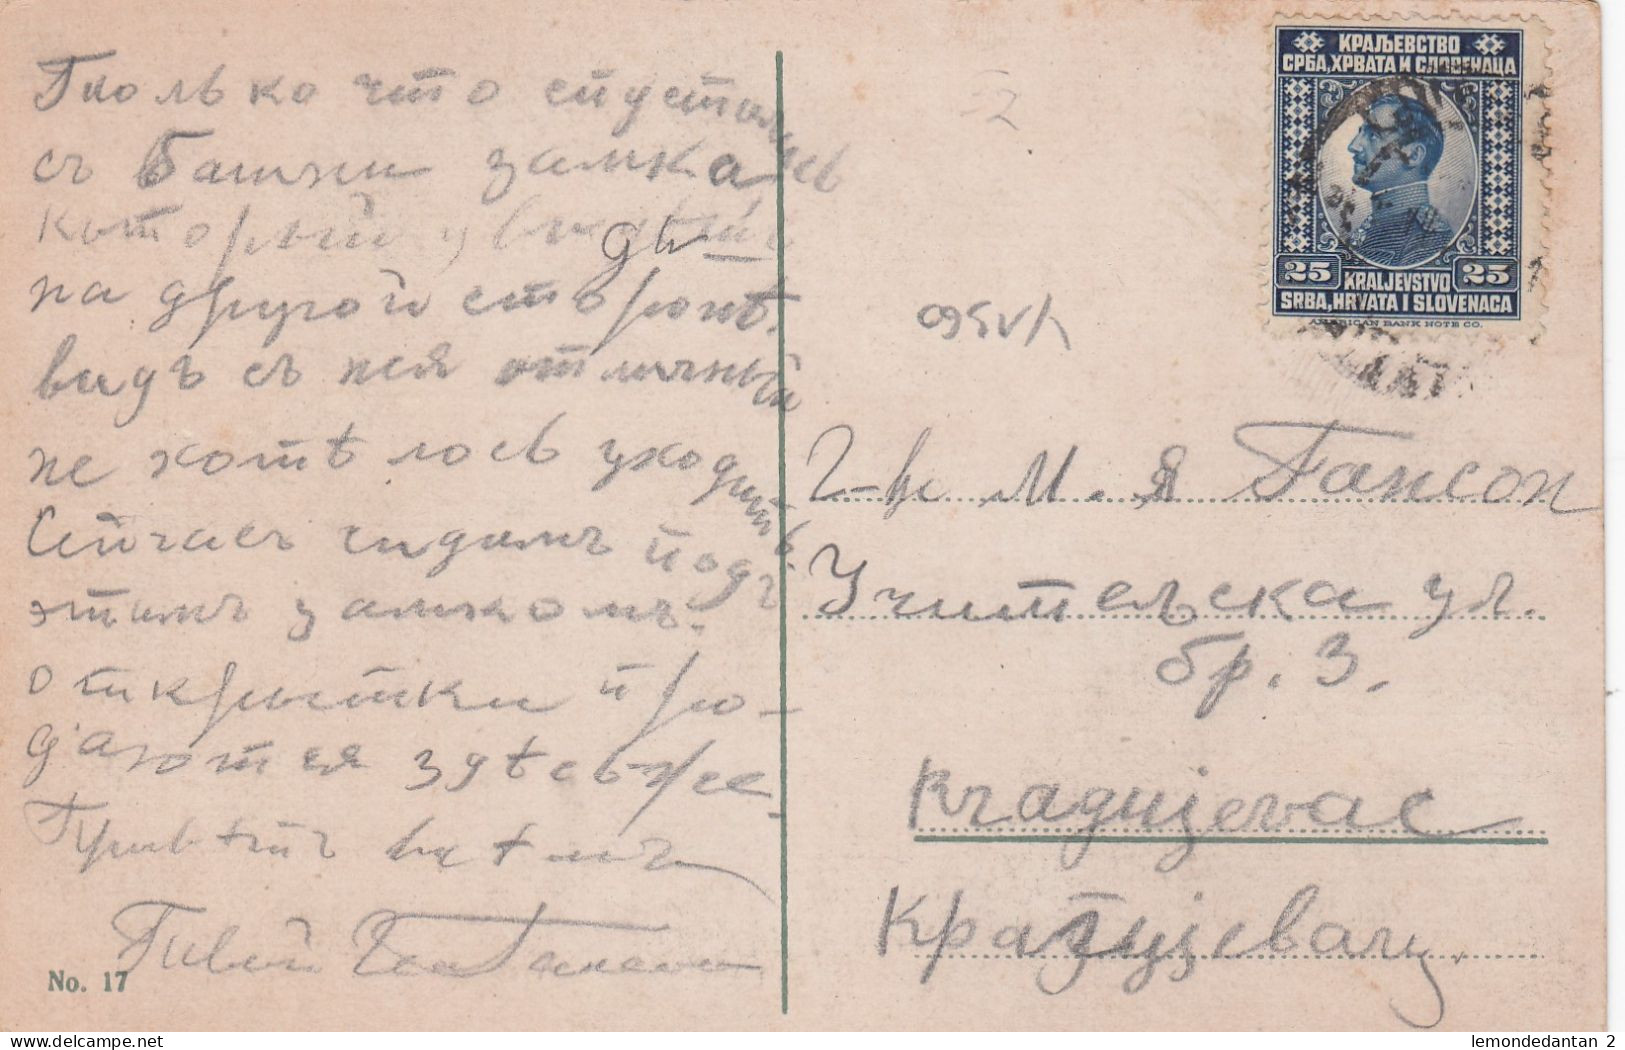 Только что спустились
съ башни замка
который увидѣли
на другой сторонѣ.
видъ съ нея отличный
не хотѣлось уходить.
Сейчасъ сидимъ подъ
этимъ замкомъ.
открытки про-
даются здѣсь-же.
Привѣтъ всѣмъ
Гансонъ
No. 17
52
КРАЉЕВСТВО
СРБА, ХРВАТА И СЛОВЕНАЦА
25 KRALJEVSTVO 25
SRBA, HRVATA I SLOVENACA
AMERICAN BANK NOTE CO.
Г-ну М. Я Гансон
Учительска ул.
бр. 3.
Kragujevac
Крагујевац.
lemondedantan 2